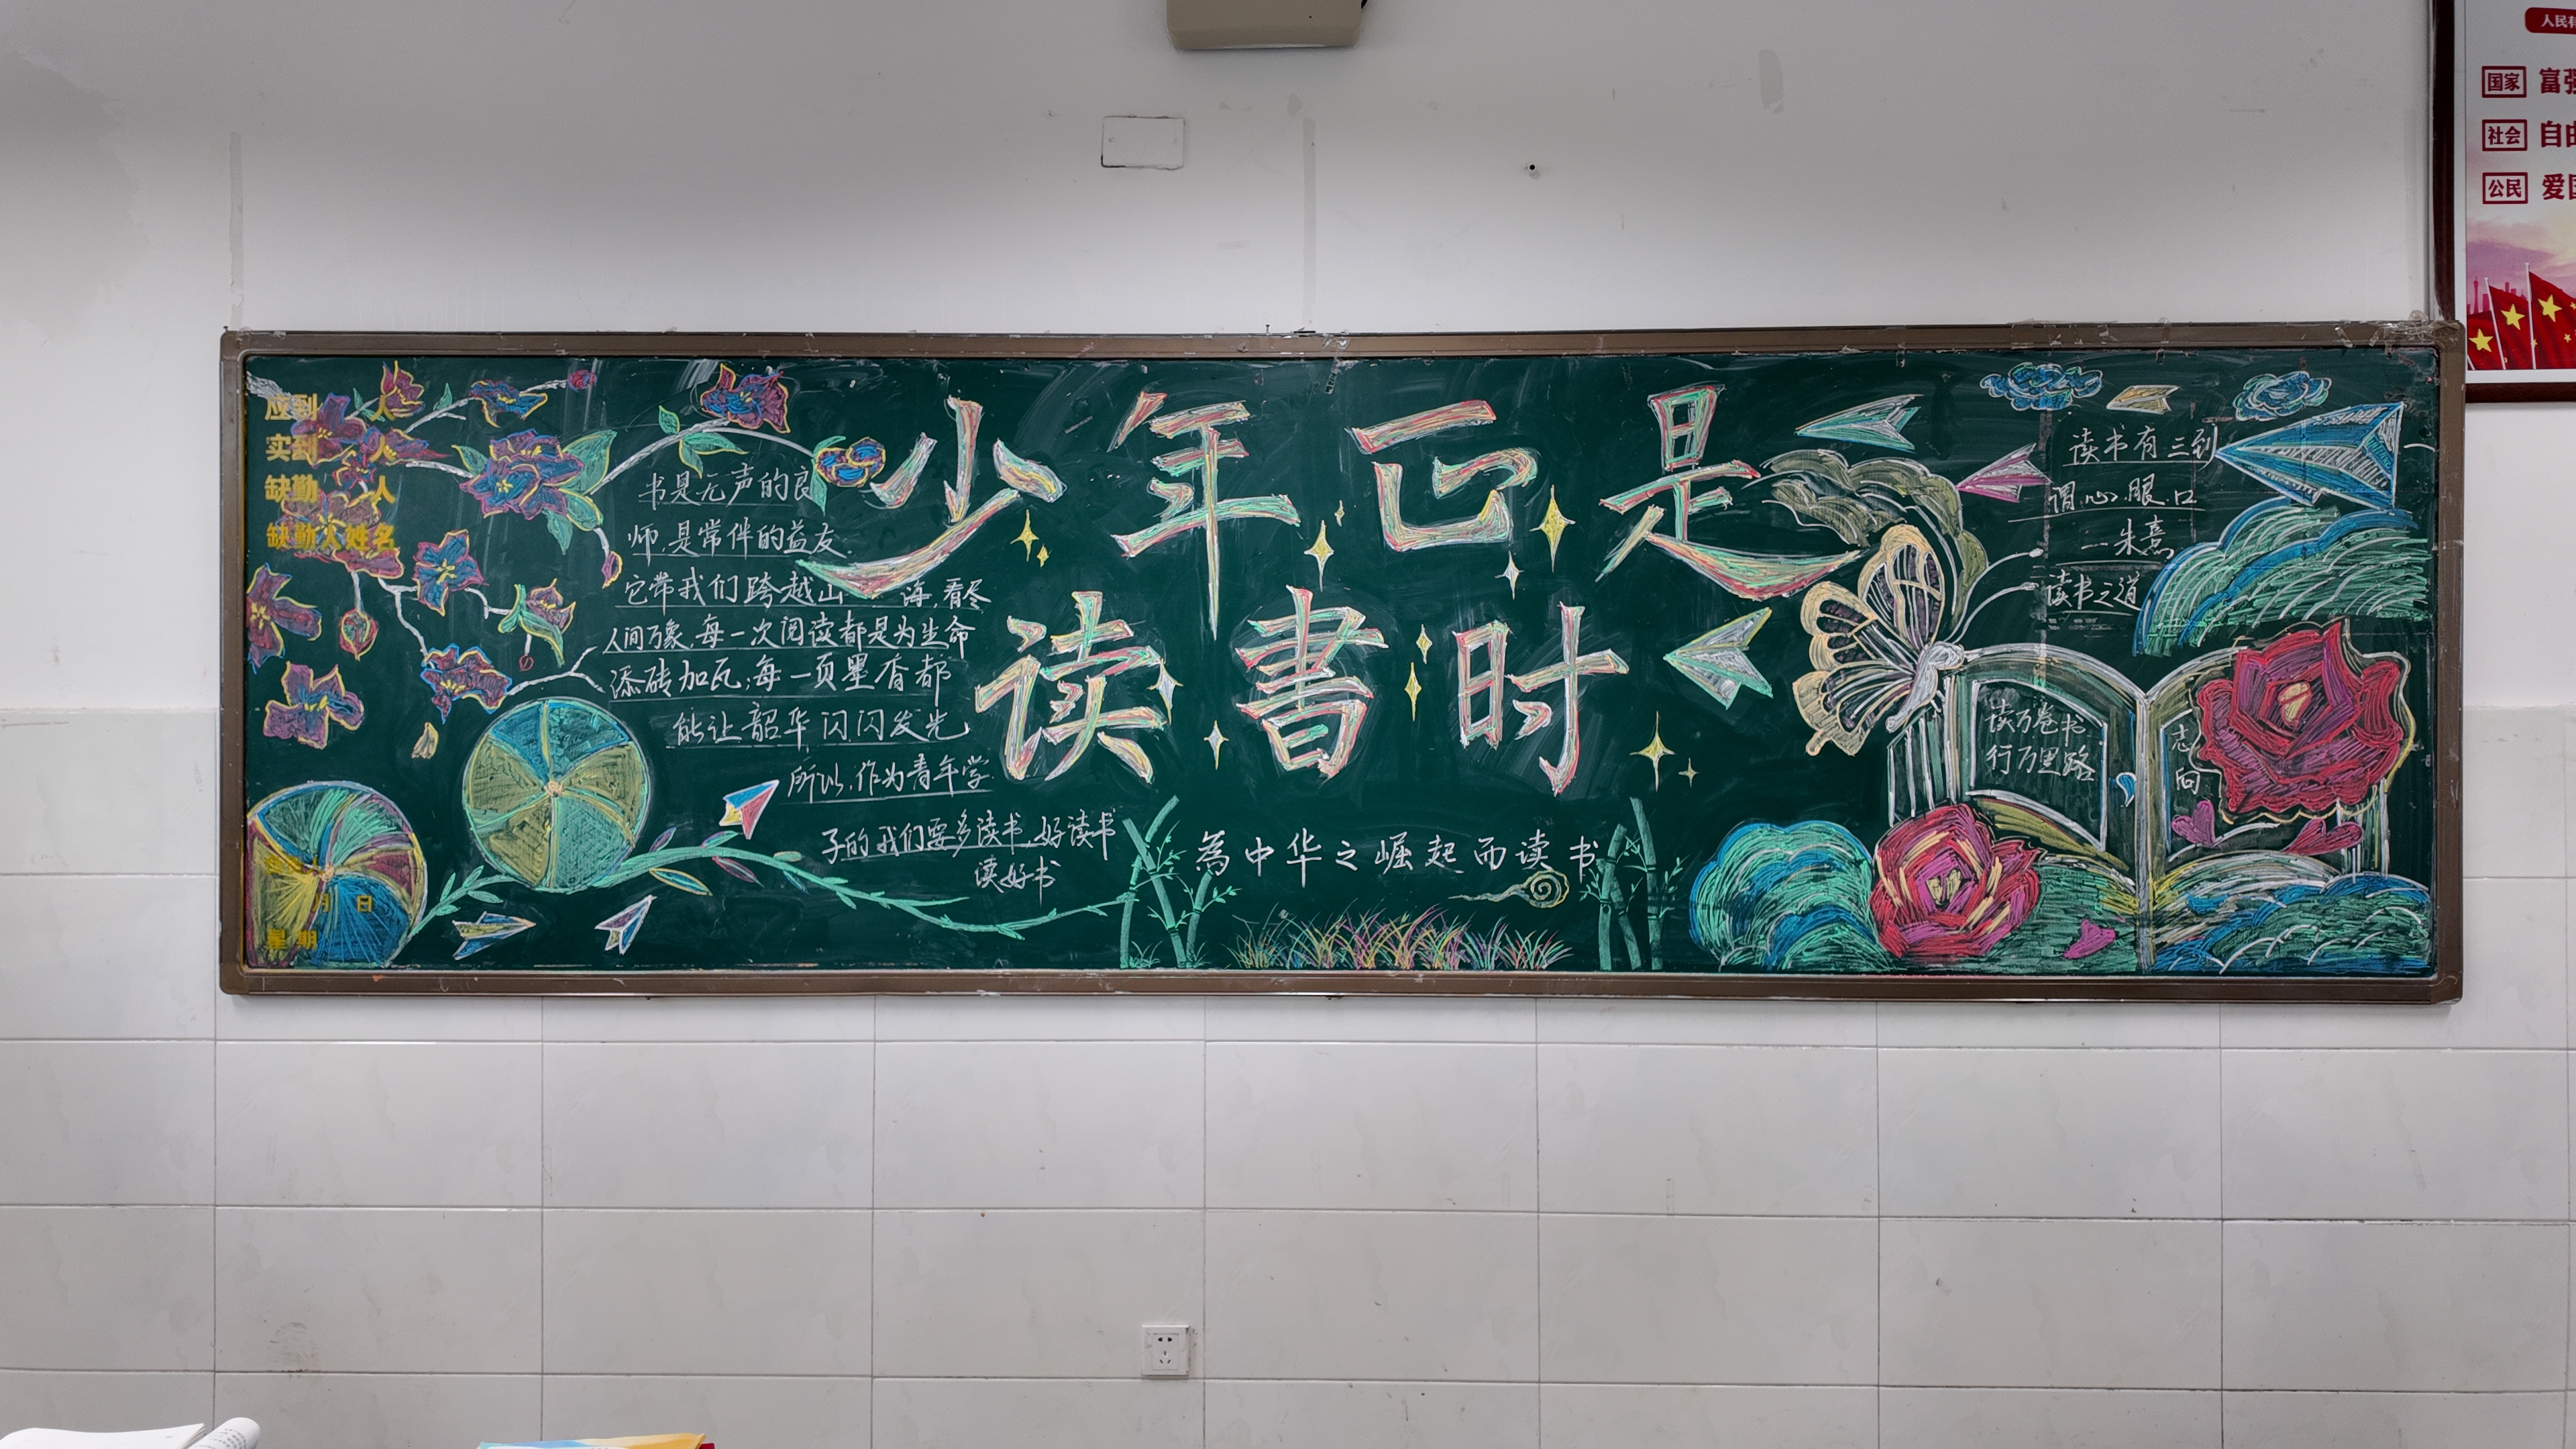 应到 人
实到 人
缺勤 人
缺勤人姓名
月 日
星期
书是无声的良
师,是常伴的益友.
它带我们跨越山 海,看尽
人间万象,每一次阅读都是为生命
添砖加瓦;每一页墨香都
能让韶华闪闪发光
所以,作为青年学
子的我们要多读书,好读书
读好书
少年正是
读書时
為中华之崛起而读书
读书有三到
谓心.眼.口
—朱熹
读书之道
读万卷书
行万里路
志
向
国家 富强
社会 自由
公民 爱国